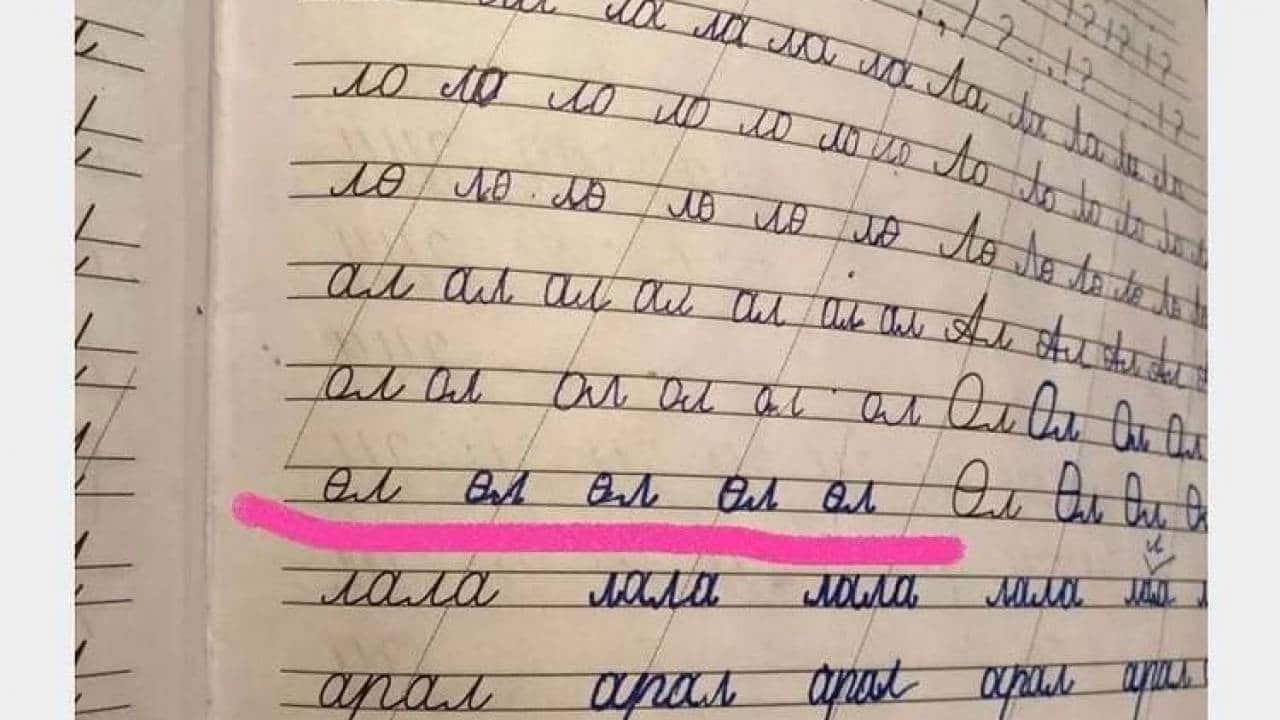 ла ла ла ла Ла Ла Ла Ла Ла
ло ло ло ло ло ло ло Ло Ло Ло Ло Ло
лө лө лө лө лө лө Лө Лө Лө Лө Лө
ал ал ал ал ал ал ал Ал Ал Ал Ал
ол ол ол ол ол ол Ол Ол Ол Ол
өл өл өл өл өл Өл Өл Өл
лала лала лала лала
арал арал арал арал арал